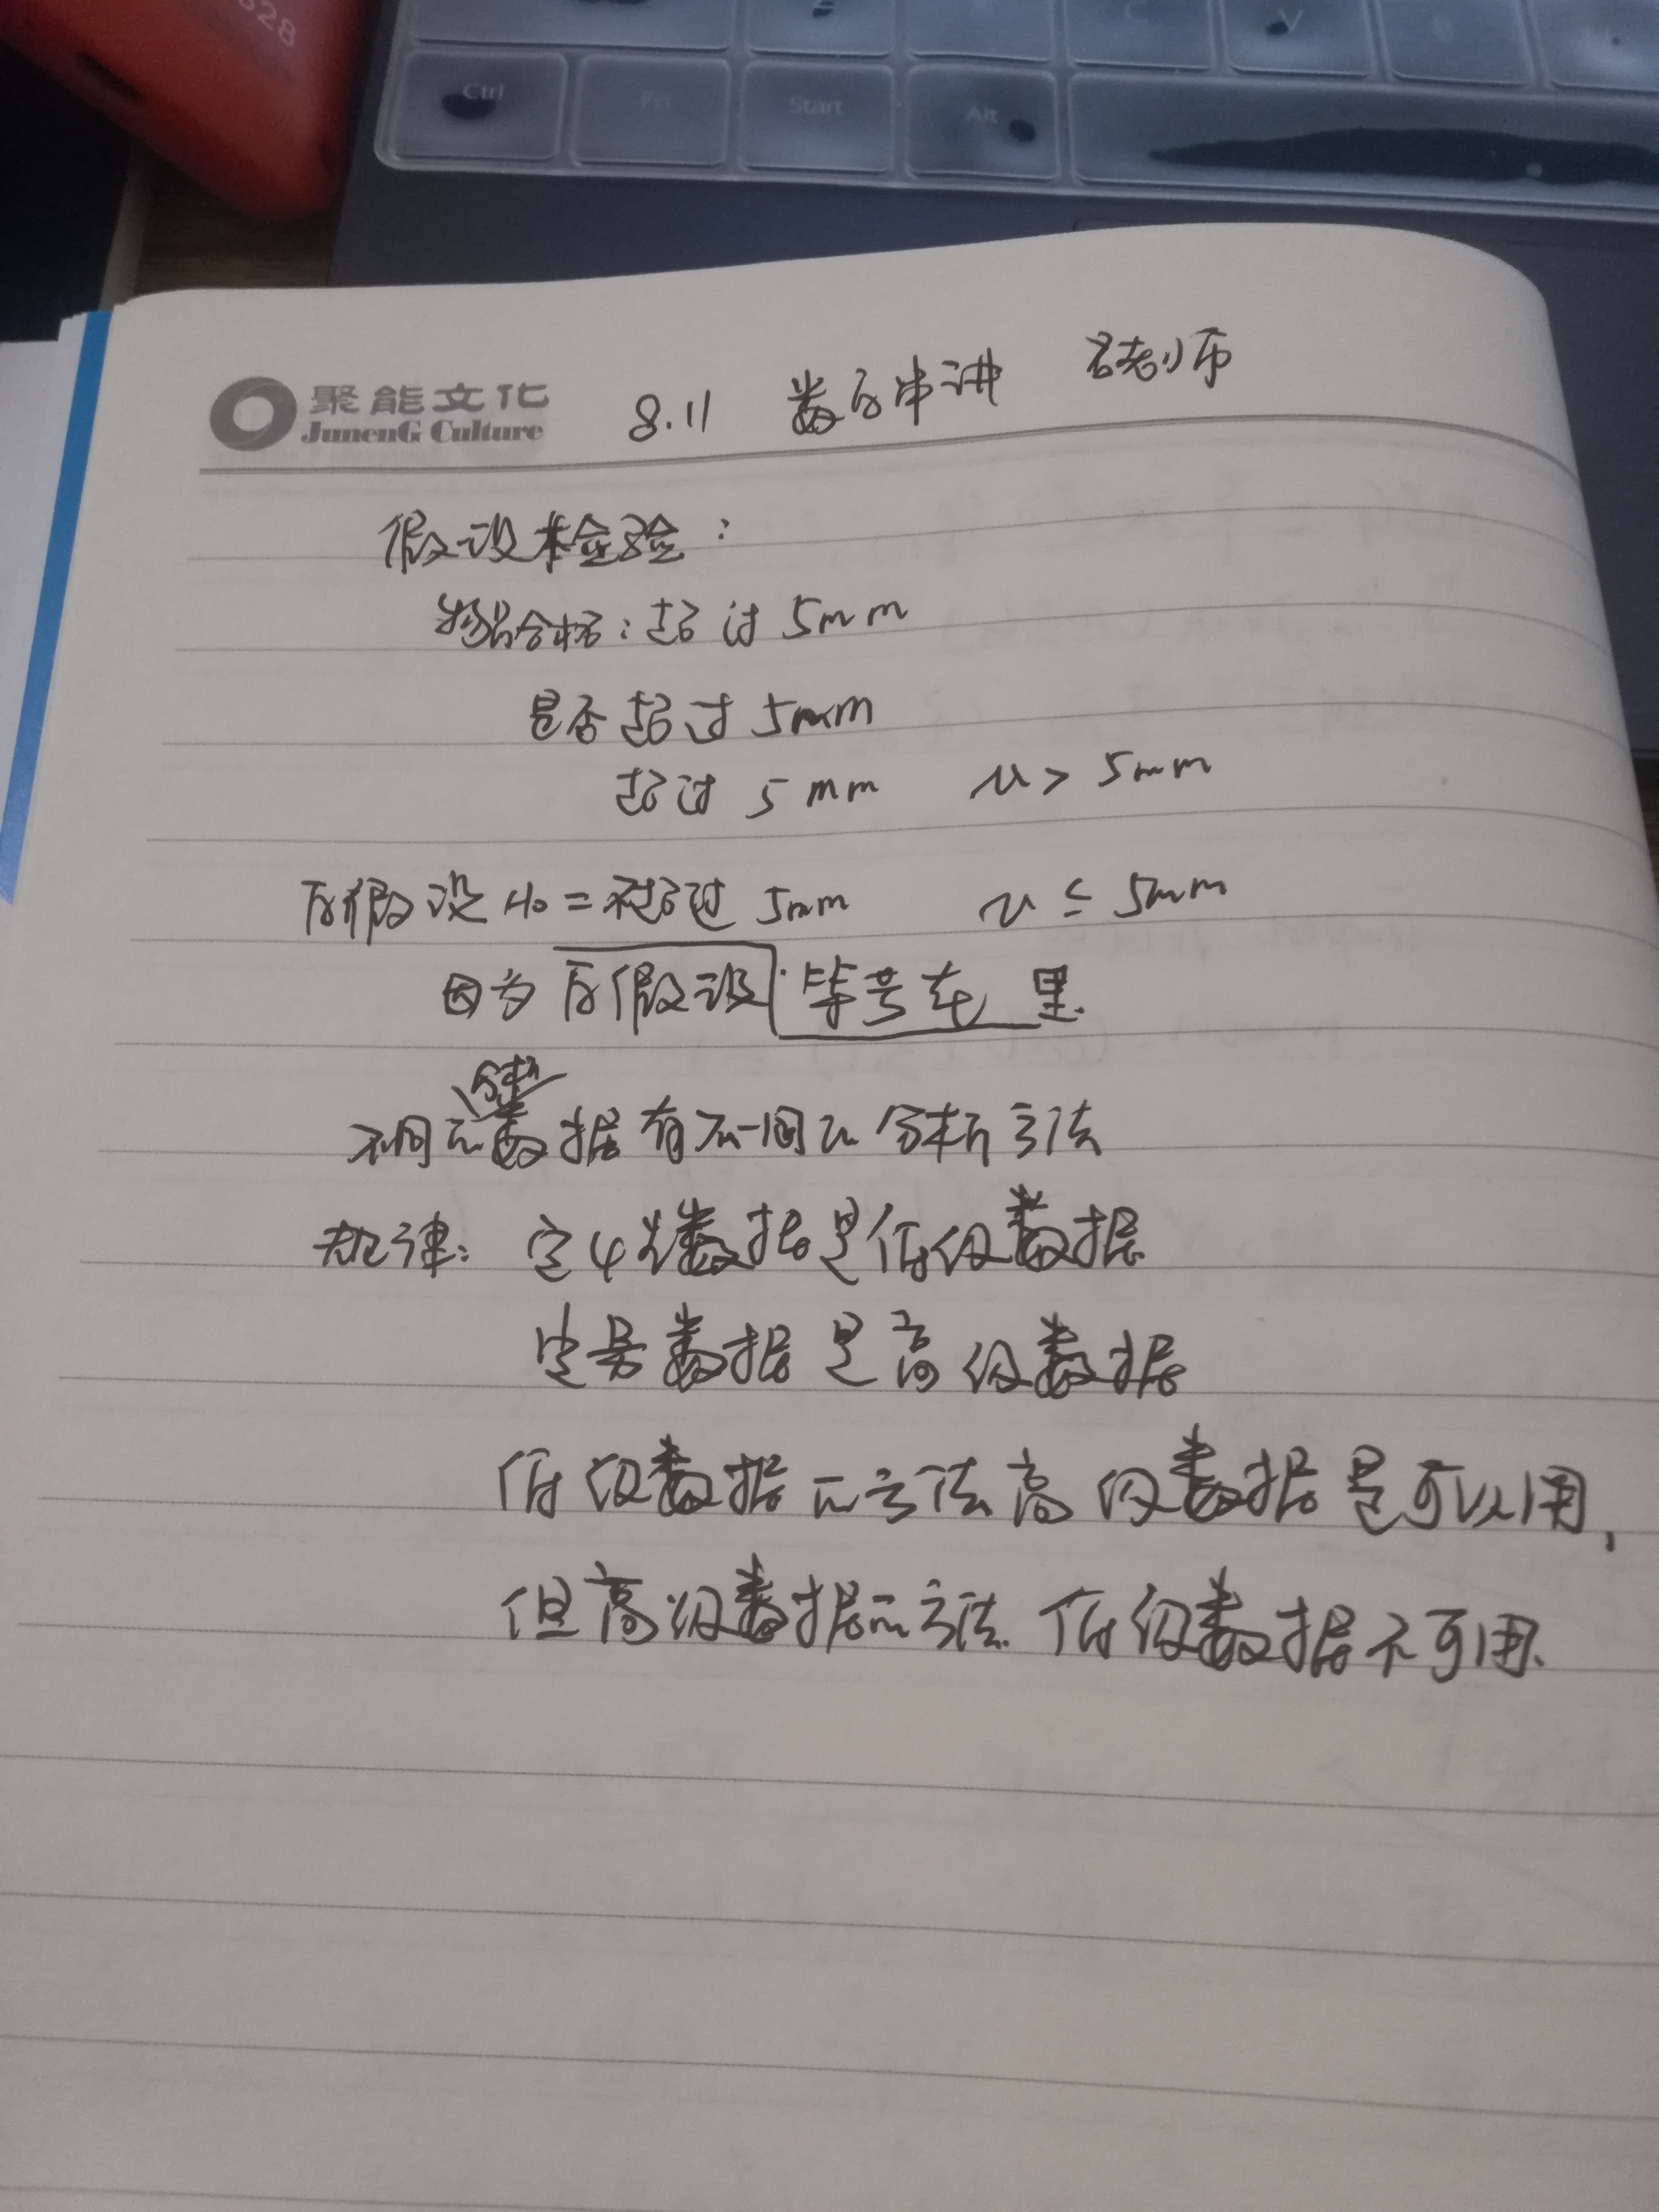 528
Z
C
V
Ctrl
Fn
Start
Alt
聚能文化
JunenG Culture
8.11 数分串讲 老师
假设检验：
物品合格：超过5mm
是否超过5mm
超过5mm u > 5mm
原假设H0=不超过5mm u ≤ 5mm
因为原假设 等号在里
分析
不同的数据有不同的分析方法
规律：定性数据是低级数据
定量数据是高级数据
低级数据的方法高级数据是可以用，
但高级数据的方法低级数据不可用